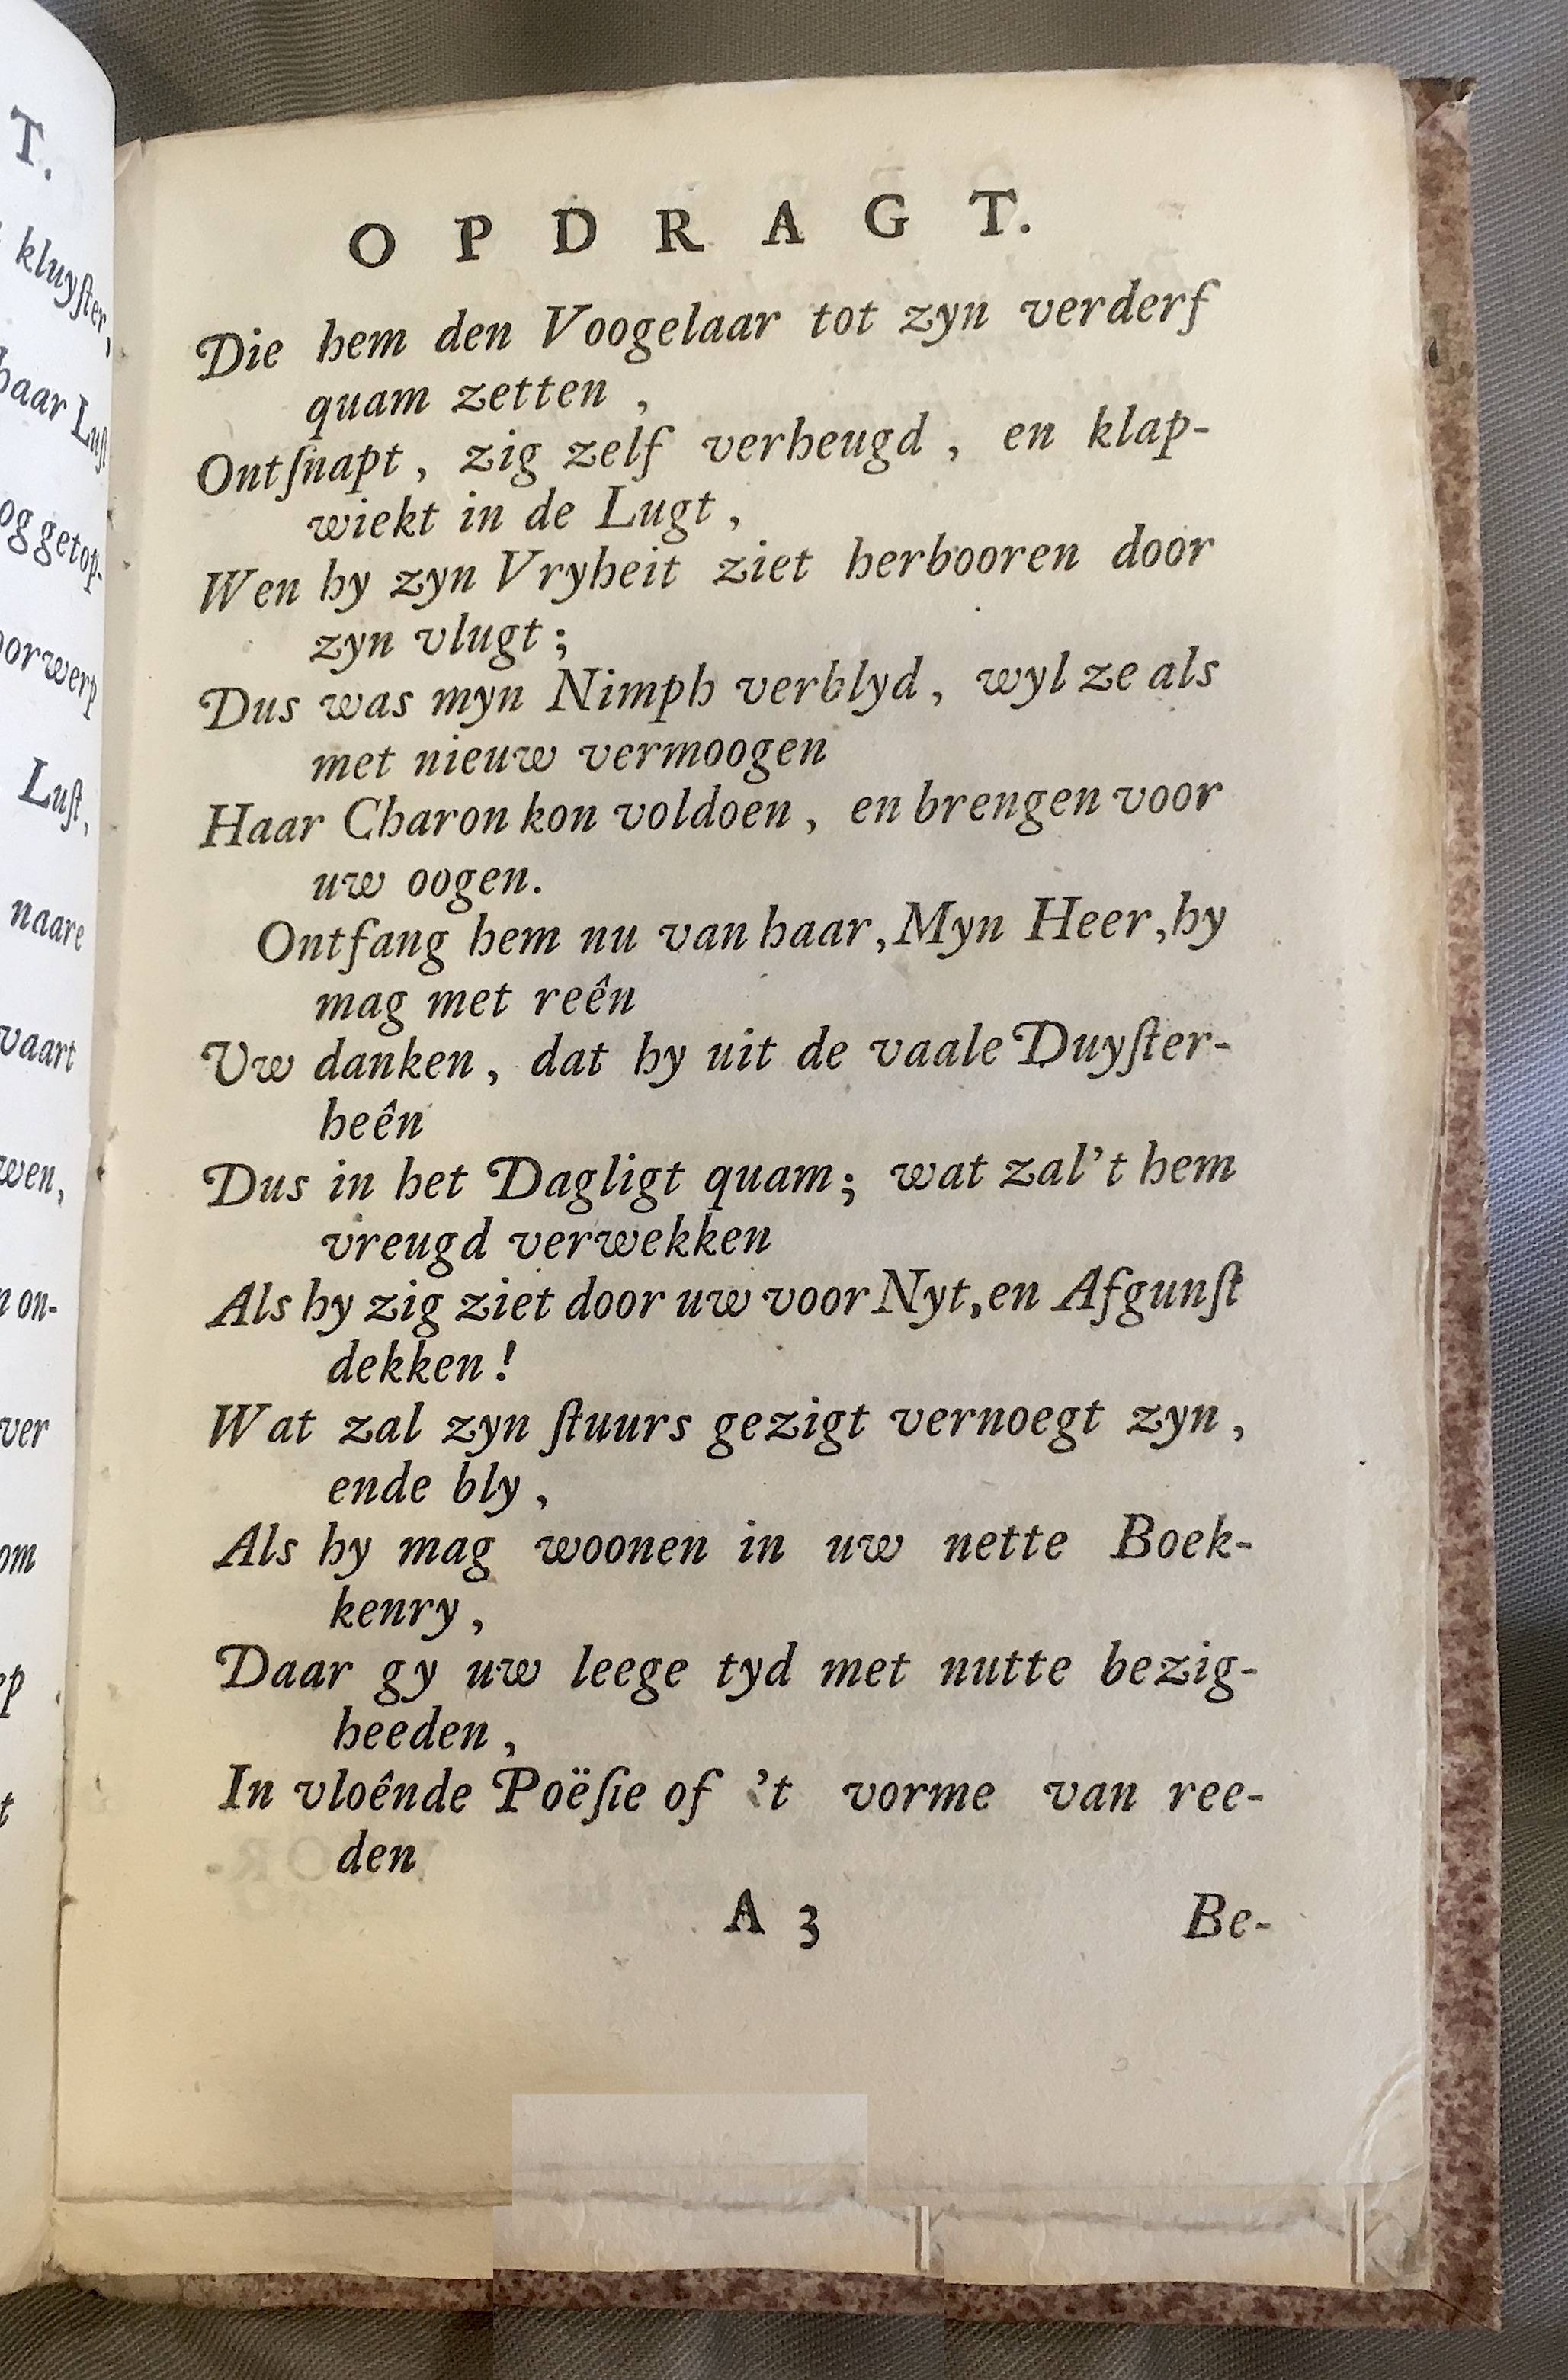 T.
kluyſter,
haar Luſt
og getop-
oorwerp
Luſt,
naare
vaart
wen,
n on-
ver
om
ep
t
OPDRAGT.
Die hem den Voogelaar tot zyn verderf
quam zetten ,
Ontſnapt , zig zelf verheugd , en klap-
wiekt in de Lugt ,
Wen hy zyn Vryheit ziet herbooren door
zyn vlugt ;
Dus was myn Nimph verblyd , wyl ze als
met nieuw vermoogen
Haar Charon kon voldoen , en brengen voor
uw oogen.
Ontfang hem nu van haar, Myn Heer, hy
mag met reên
Uw danken , dat hy uit de vaale Duyſter-
heên
Dus in het Dagligt quam; wat zal 't hem
vreugd verwekken
Als hy zig ziet door uw voor Nyt, en Afgunſt
dekken !
Wat zal zyn ſtuurs gezigt vernoegt zyn ,
ende bly ,
Als hy mag woonen in uw nette Boek-
kenry ,
Daar gy uw leege tyd met nutte bezig-
heeden ,
In vloênde Poëſie of 't vorme van ree-
den
A 3 Be-